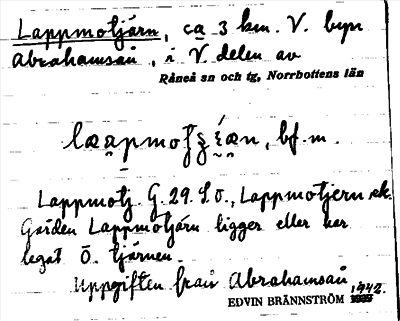 Lappmotjärn, ca 3 km. V. byn
Abrahamsån, i V. delen av
Råneå sn och tg, Norrbottens län
bf. m.
Lappmotj. G. 29. S. O., Lappmotjern ek.
Gården Lappmotjärn ligger eller har
legat Ö. tjärnen.
Uppgiften från Abrahamsån
EDVIN BRÄNNSTRÖM 1942.